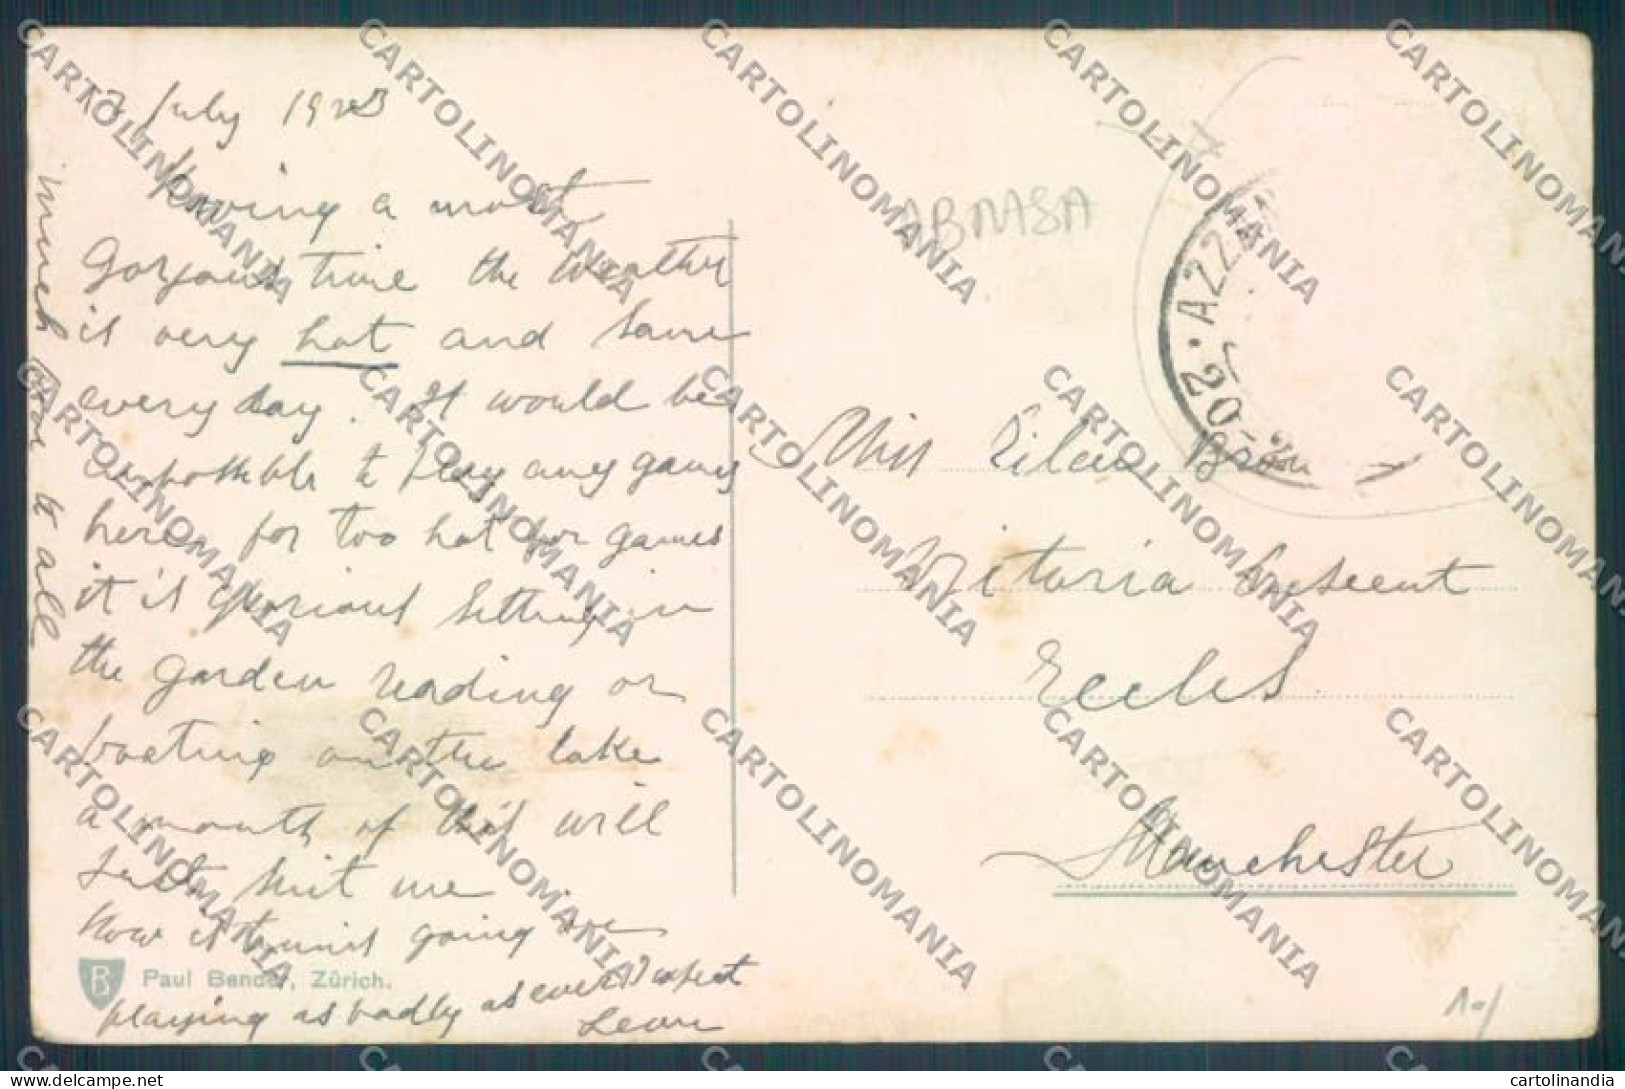 July 1923
Having a most
Gorgeous time the weather
is very hot and same
every day. It would be
impossible to play any games
here for too hot for games
it is glorious sitting in
the garden reading or
boating on the lake
a month of this will
just suit me
How is tennis going on
playing as badly as ever I expect
Leon
much love to all
Paul Bender, Zürich.
ABMSA
· AZZA
20
Miss Eileen
Victoria Crescent
Eccles
Manchester
10/
CARTOLINOMANIA
cartolinandia
delcampe.net